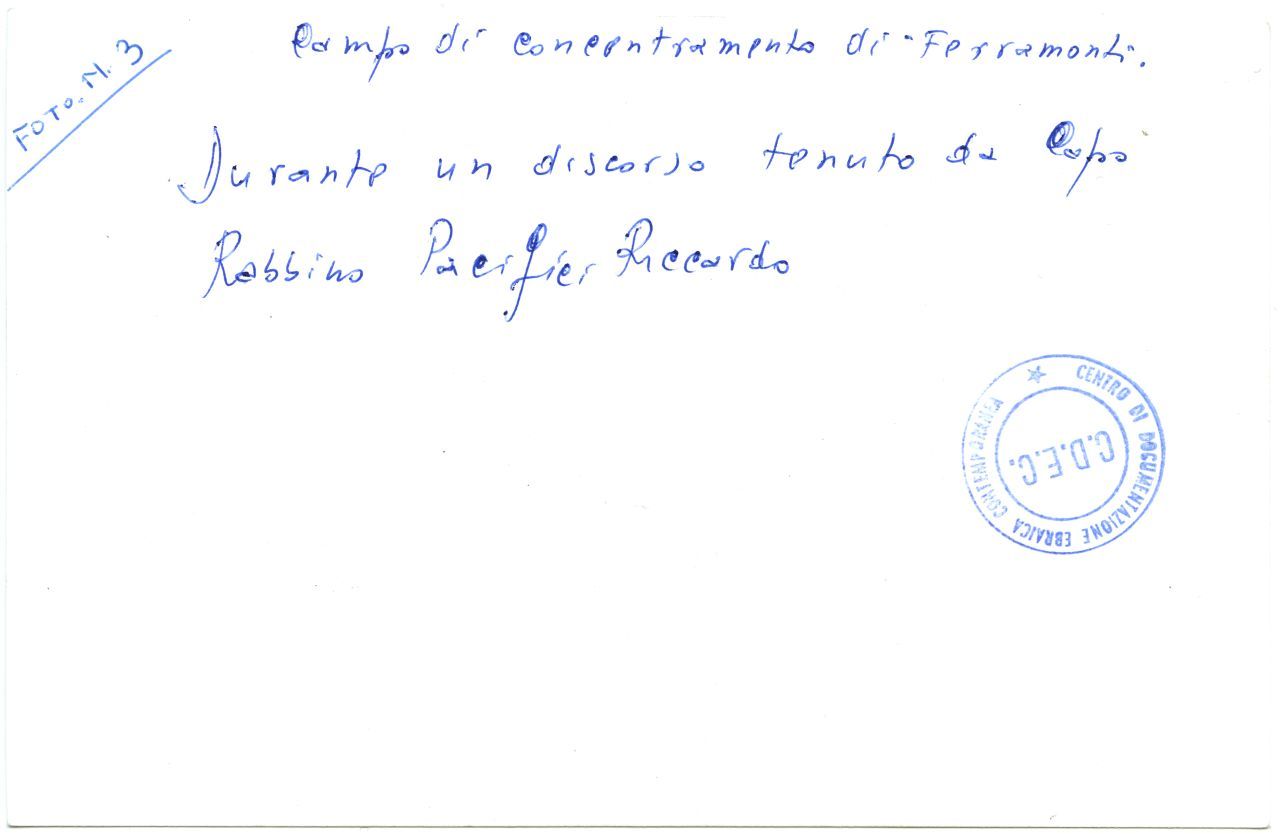 FOTO. N. 3
Campo di concentramento di "Ferramonti".
Durante un discorso tenuto da Capo
Rabbino Pacifici Riccardo
CENTRO DI DOCUMENTAZIONE EBRAICA CONTEMPORANEA
C.D.E.C.